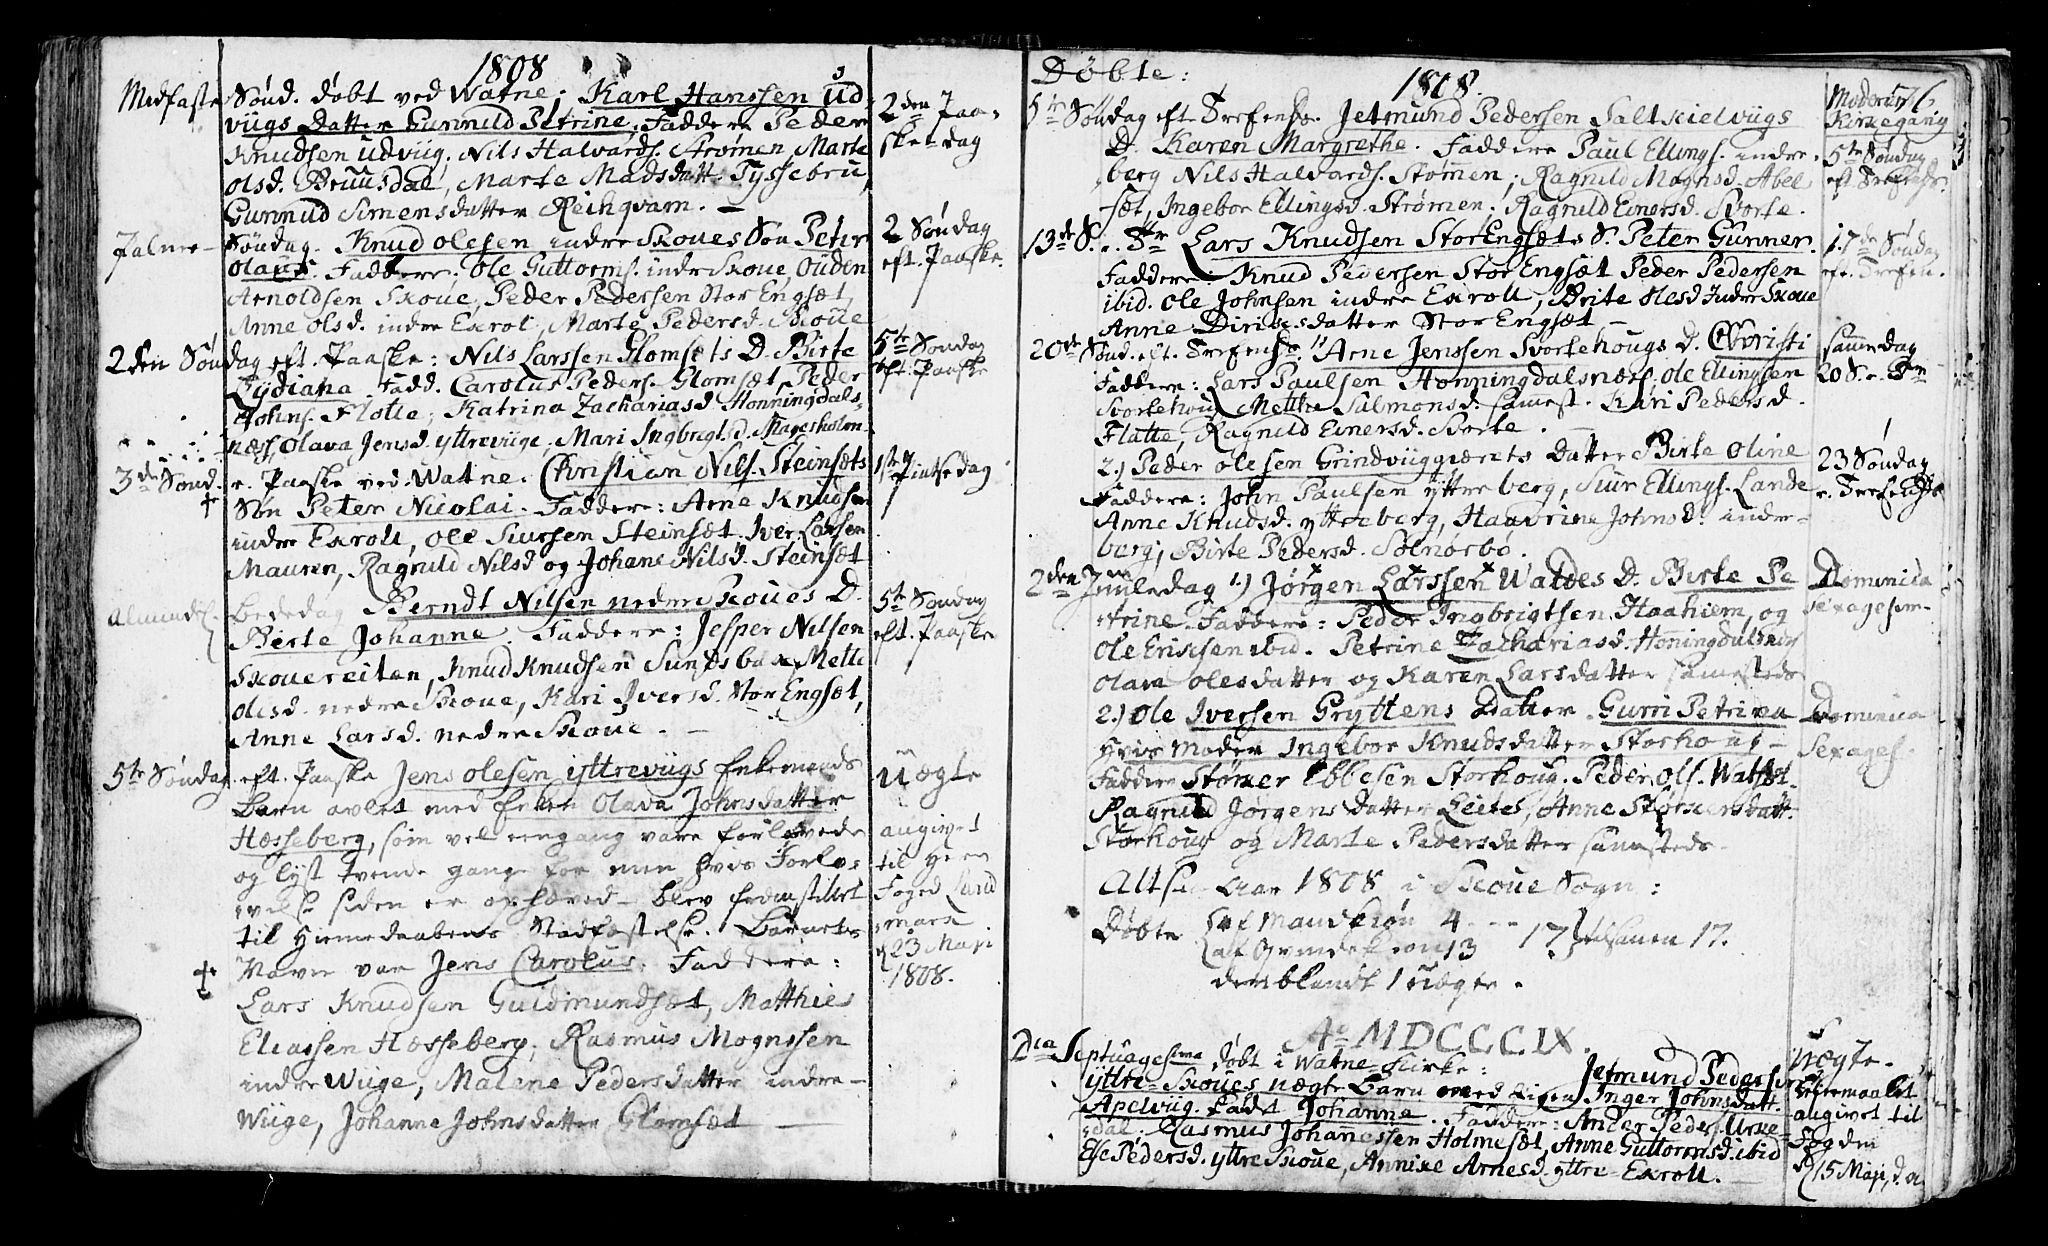 1808
Midfaste Sønd. døbt ved Watne. Karl Hanssen Ud-
viigs Datter Gunnild Petrine, Faddere Peder
Knudsen Udviig. Nils Halvards. Strømen, Marte
Olsd. Bruusdal, Marte Madsdatt. Tyssebru,
Gunnild Simensdatter Rechqvam. —
2den Paa-
skedag
Palme- Søndag. Knud Olesen indre Skoues Søn Peter
Olaus. Faddere: Ole Guttorms. indre Skoue, Ouden
Arnoldsen Skoue, Peder Pedersen Stor Engsæt,
Anne Olsd. indre Exrol, Marte Pedersd. Skoue
2 Søndag
eft. Paaske.
2den Søndag eft. Paaske: Nils Larssen Glomsets D. Birte
Lydiana. Fadd. Carolus Peders. Glomsæt, Peder
Johns. Flotte, Katrina Zachariasd. Honningdals-
næs, Olava Jensd. yttreviige, Mari Ingbrigtsd. Magesholm
5te Søndag
eft. Paaske
3de Sønd. e. Paaske ved Watne. Christian Nils. Steinsæts
Søn Peter Nicolai. Faddere: Arne Knudsen
indre Exroll, Ole Siursen Steinsæt. Iver Larsen
Mauren, Ragnild Nilsd og Johane Nilsd. Steinsæt
1ste Pintsedag
Almindel. Bededag Berndt Nilsen nedre Skoues D.
Berte Johanne. Faddere: Jesper Nilsen
Skouereiten, Knud Knudsen Sundsbøe, Mette
Olesd. nedre Skoue, Kari Iversd. Stor Engsæt,
Anne Larsd. nedre Skoue. —
5te Søndag
eft. Paaske
5te Søndag eft. Paaske Jens Olesen yttreviigs Enkemands
Barn avlet med Enken Olava Johnsdatter
Hæsseberg, som vel eengang vare forlovede
og lyst tvende gange for men hvis Forlo-
velse siden er ophæved — blev fremstillet
til Hiemedaabens Stadfæstelse. Barnets
Navn var Jens Carolus. Faddere:
Lars Knudsen Guldmundsæt, Matthies
Eliassen Hæsseberg, Rasmus Mognssen
indre Wiige, Malene Pedersdatter indre-
Wiige, Johanne Johnsdatter Glomsæt —
Uægte
angivet
til Herr
Foged Lund
mark
23 Maji
1808.
Døbte: 1808. Moderens
Kirkegang
5te Søndag eft Trefoldh. Jetmund Pedersen Saltkielviigs
D. Karen Margrethe. Faddere Paul Ellings. indre-
berg Nils Halvards. Stømen, Ragnild Mognsd. Abel
sæt, Ingebor Ellingsd. Strømen. Ragnild Einersd. Svorte.
5te Søndag
eft. Trefoldh.
13de S. . Tr. Lars Knudsen Stor Engsæts S. Peter Gunner.
Faddere: Knud Pedersen Stor Engsæt Peder Pedersen
ibid. Ole Johnsen indre Exroll, Brite Olesd Indre Skoue
Anne Dirixsdatter Stor Engsæt —
17de Søndag
20de Sønd. eft. Trefoldh. Arne Jenssen Svortehougs D. Christi
Faddere: Lars Paulsen Honningdalsnæs. Ole Ellingsen
Svortehoug Metthe Salmonsd. samest. Kari Pedersd.
Flatte, Ragnild Einersd. Svorte. —
samme dag
20 S. e. Tr
2.) Peder Olesen Grindviiggiærets Datter Birte Oline
Faddere: John Paulsen yttreberg, Siur Ellings. Lande
Anne Knudsd. yttreberg, Haavrine Johnsd. indre-
berg, Birte Pedersd. Solnørbø.
23 Søndag
2den Juuledag 1.) Jørgen Larssen Watnes D. Birte Pe
trine. Faddere: Peder Ingbrigtsen Haahiem, og
Ole Ericsen ibid. Petrine Zachariasd. Honingdalsnæs
Olava Olesdatter og Karen Larsdatter samesteds
Dominica
Sexagesim-
2.) Ole Iversen Gryttens Datter Gurri Petrina
Hvis moder Ingebor Knudsdatter Storhoug —
Faddere Størker Ebbesen Storhoug. Peder Ols. Watset.
Ragnild Jørgens Datter Leites, Anne Størkersdatt.
Storhoug og Marte Pedersdatter sammesteds.
Dominica
Sexages.
Altsaa Aar 1808 i Skoue Sogn:
Døbte af Mandkiøn 4 17 tilsamen 17.
af Qvindekiøn 13
deriblandt 1 uægte.
Ao MDCCCIX.
Dca Septuagesima døbt i Watne Kirke: Jetmund Pedersen
yttre-Skoues uægte Barn med Pigen Inger Johnsdatt.
Apelviig. kaldt Johanne. Faddere: Ander Peders. Urke-
dal. Rasmus Johannessen Holmesæt, Anne Guttormsd. ibid
Else Pedersd. yttre Skoue, Annike Arnesd. yttre Exroll. —
Uægte.
Leiermaalet
angivet til
Fogden
15 Maji,